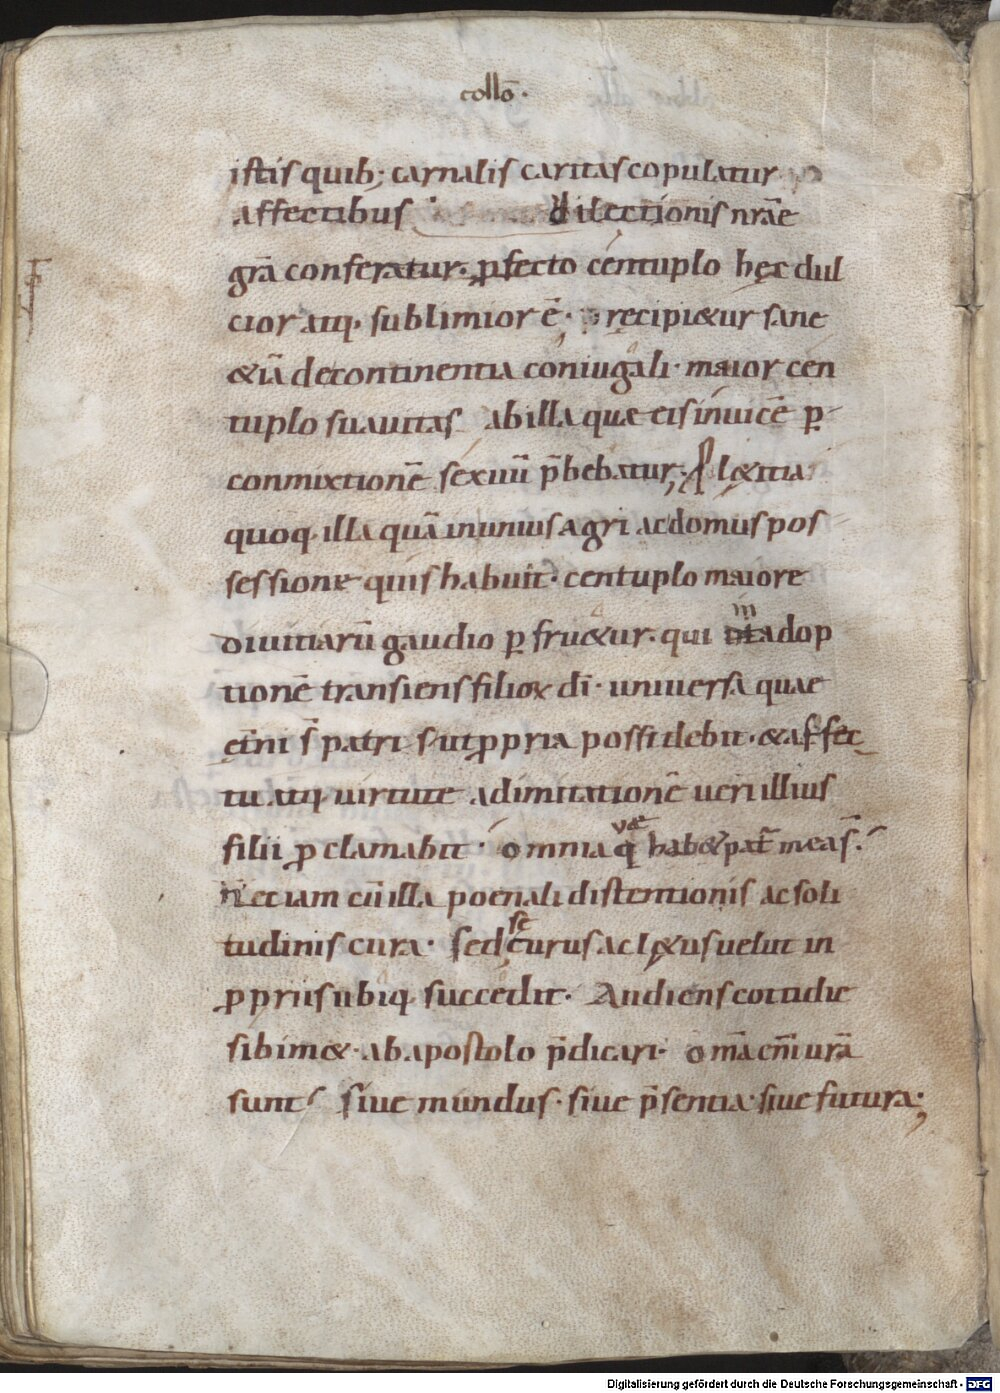 collō·
istis quib; carnalis caritas copulatur
affectibus dilectionis nr̄ae
gr̄a conferatur· ꝓfecto centuplo hęc dul
cior atq· sublimior ē· pręcipi&ur sane
&iā de continentia coniugali· maior cen
tuplo suauitas ab illa quae eis inuicē ꝑ
conmixtionē sexuū p̄bebatur; l&itia
quoq· illa quā in unius agri ac domus pos
sessione quis habuit· centuplo maiore
diuitiarū gaudio ꝑfru&ur· qui in adop
tionē transiens filioꝝ dī· uniuersa quae
et̄ni s̄ patris ut ꝓpria possidebit· & affec
tu atq· uirtute ad imitationē ueri illius
filii ꝓclamabit· omnia quae hab& pat̄ mea s̄·
N̄ etiam cū illa poenali distentionis ac soli
tudinis cura· sed securus ac l&us uelut in
ꝓpriis ubiq· succedit· Audiens cottidie
sibim&· ab apostolo p̄dicari· om̄a eni̅ ur̄a
sunt siue mundus· siue p̄sentia· siue futura;